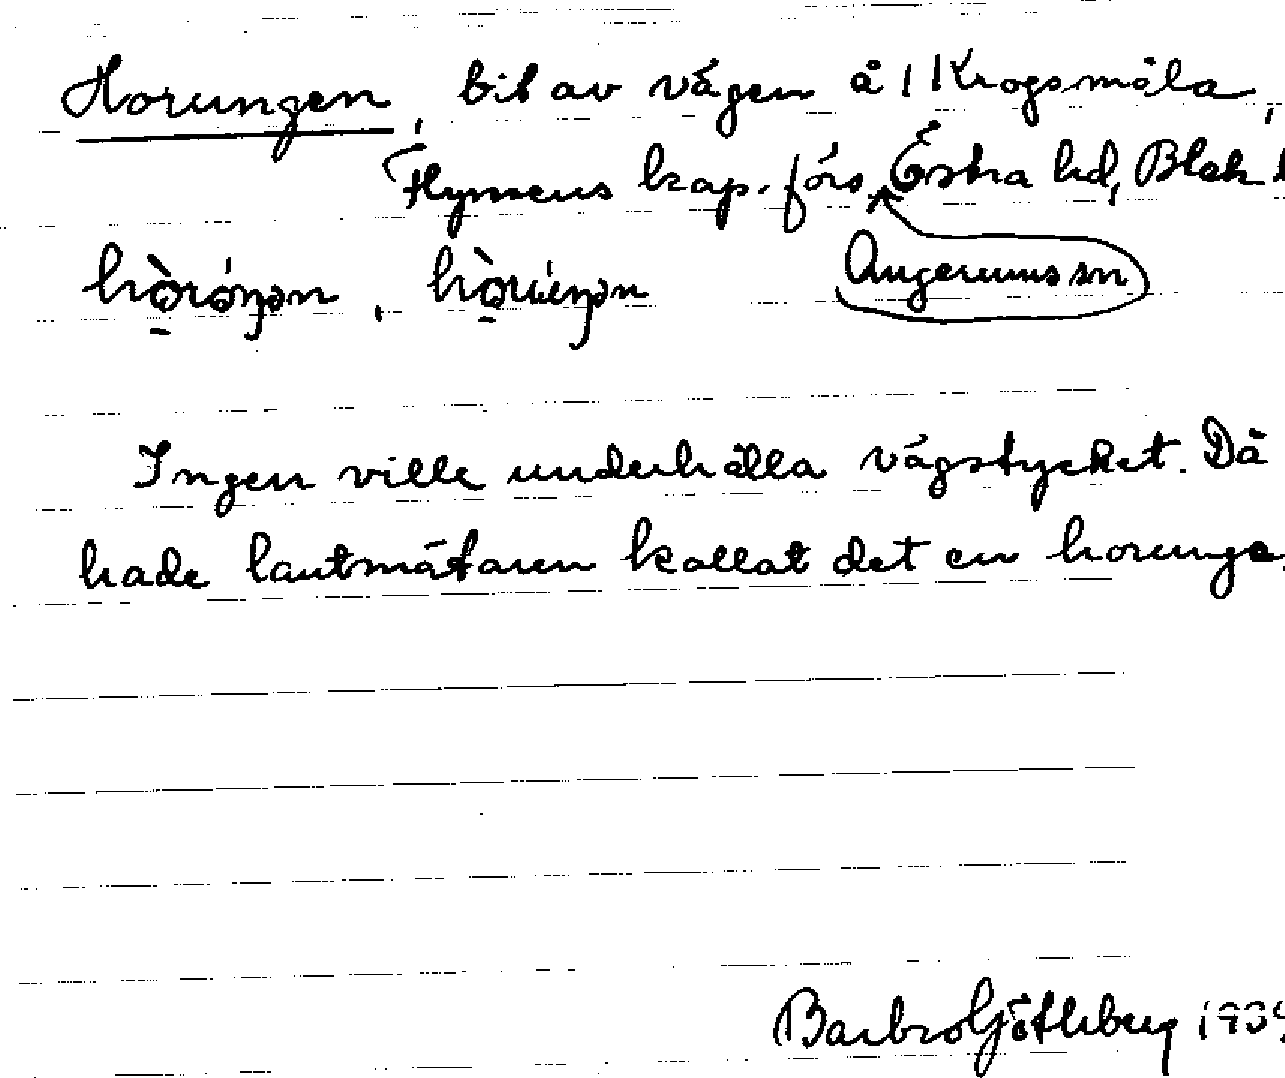 Horungen, bit av vägen å 1 Krogsmåla,
Flymens kap. förs. Östra hd, Blek
Augerums sn
Ingen ville underhålla vägstycket. Då
hade lantmätaren kallat det en horunge.
Barbro Götleberg